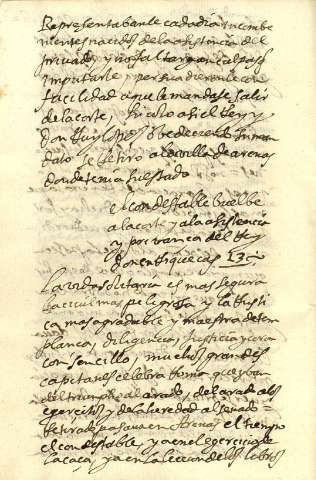 Representabanle cada dia inconbe
nientes nacidos de la asistencia del
privado, y no faltaron culpas q
imputarle y persuadieronle con
facilidad a que le mandase salir
de la corte, hiçolo asi el Rey y
don Ruy Lopez obedeciendo su man
dato se retiro a la villa de arenas
donde tenia su estado
el condestable buelbe
a la corte y a la asistencia
y por privança del Rey
don enrrique cap. 13
La vida solitaria es mas segura
la civil mas peligrosa y la rustica
mas agradable y maestra de tem
plança, diligencia, justicia y vida
con sencillo, muchos grandes
capitanes celebra Roma que yvan
del triunpho al arado, del arado a los
egercitos y de la heredad al senado
Retirado pasava en Arenas el tiempo
el condestable, ya en el egercicio de
la caça, ya en la leccion de los libros